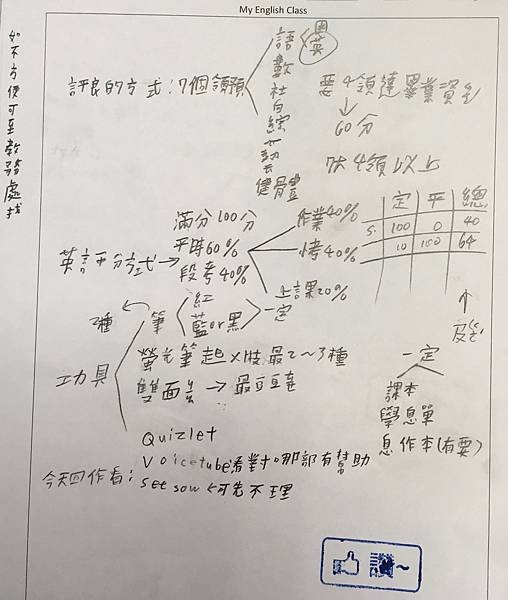 My English Class
如不方便可至教務處找
評良的方式：7個領預
語 國 英
數
社
自
綜
健體
要4領達畢業資
60分
4領以上
英語平分方式
滿分100分
平時60%
段考40%
作業40%
小考40%
上課20%
定 平 總
S. 100 0 40
10 100 64
2種
筆
紅
藍or黑
一定
工具
螢光筆起 最2~3種
雙面
一定
課本
學息單
息作本(有要)
Quizlet
Voicetube 那部有幫助
今天回作看：see sow 可先不理
讚~